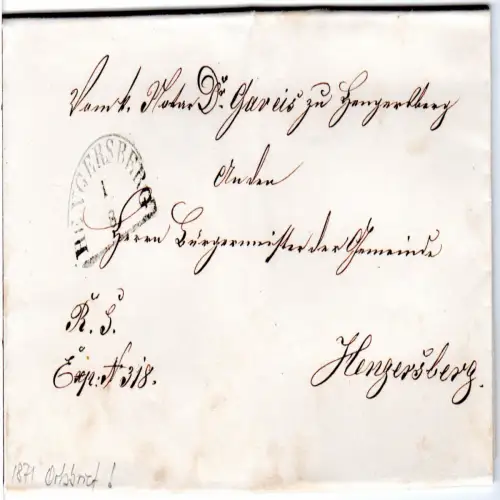 Vom k. Notar Dr. Gareis zu Hengersberg
An den
HENGERSBERG
1
8
Herrn Bürgermeister der Gemeinde
R. S.
Exp: N 318.
Hengersberg.
1871 Ortsbrief !